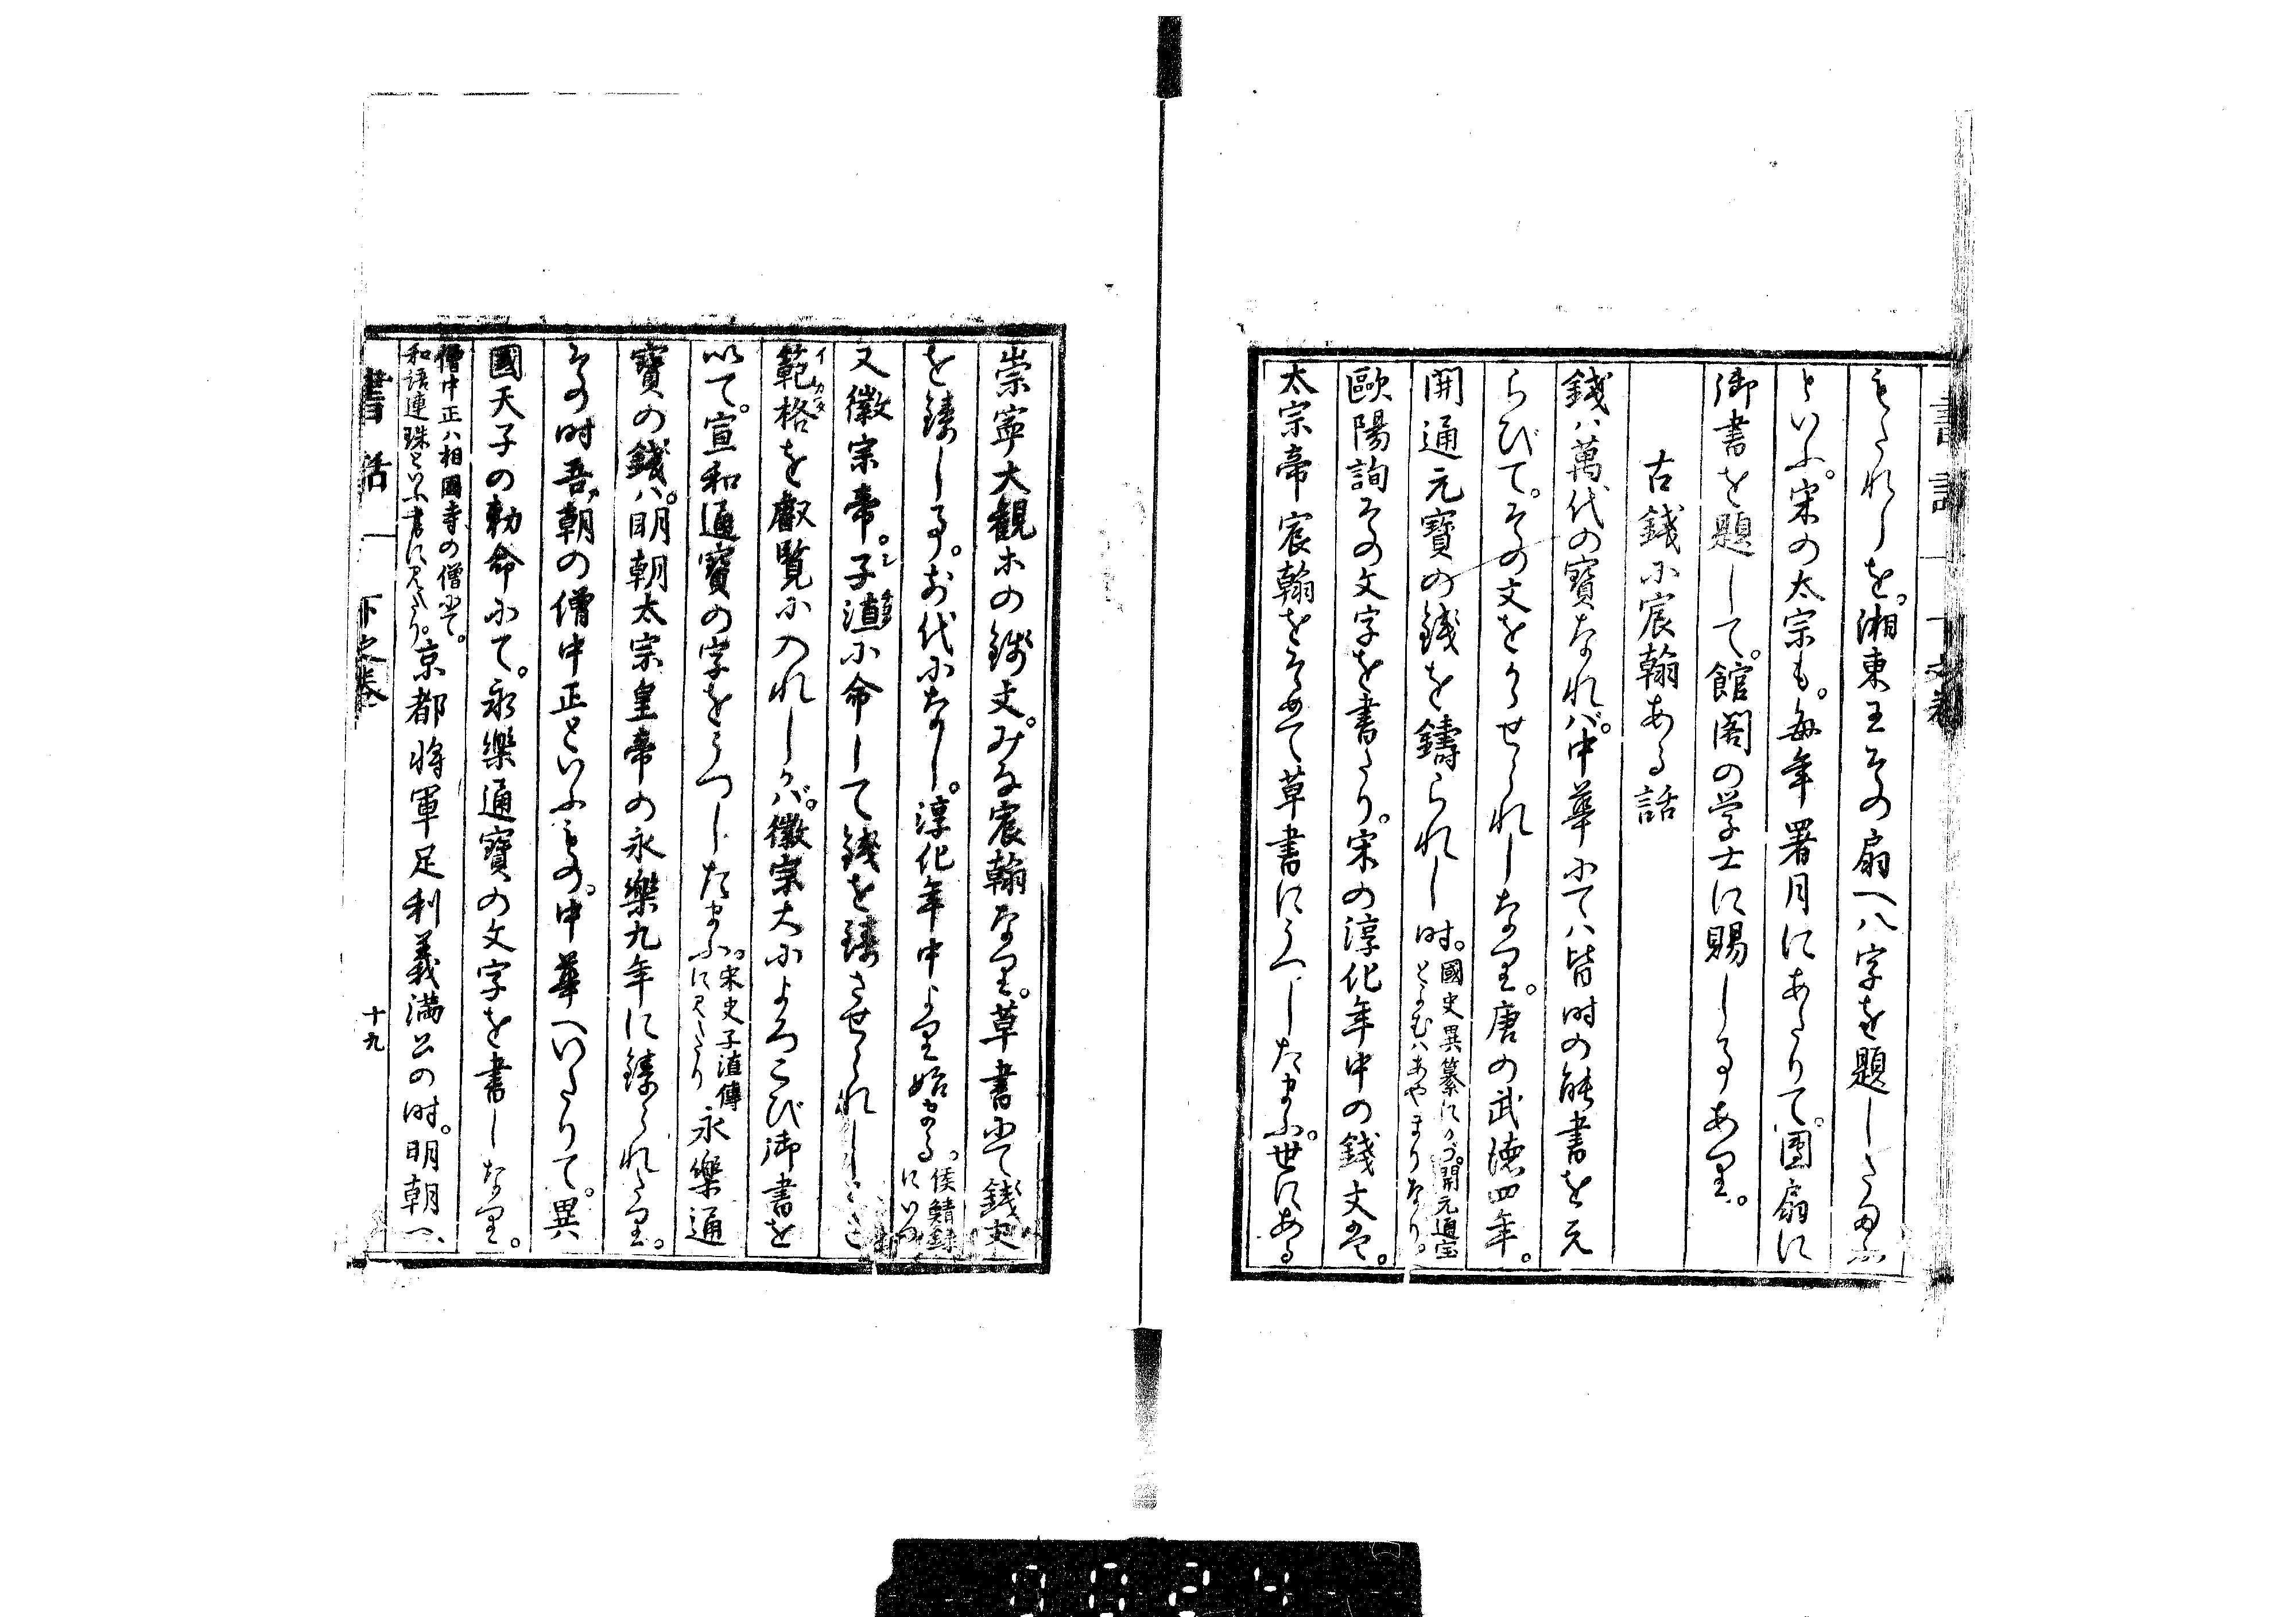 もたれしを。湘東王その扇へ八字を題したまふ
といふ。宋の太宗も。毎年署月にあたりて。團扇に
御書を題して。館閣の学士に賜しるあり。
古錢に宸翰ある話
錢ハ萬代の寶なれバ。中華にてハ皆時の能書をえ
らびて。その文をかゝせられしなり。唐の武徳四年。
開通元寶の錢を鑄られし時。國史異纂に
とよむハあやまりなり。開元通宝
歐陽詢その文字を書たり。宋の淳化年中の錢文は。
太宗帝宸翰をそめて草書にうつしたまふ。世にある
崇寧大觀ホの錢文。みな宸翰なり。草書にて錢文
を鑄しる。前代になし。淳化年中より始まる。侯鯖録
にいづ
又徽宗帝。子淔に命して錢を鑄させられしとき
範格を叡覧に入れしかバ。徽宗大によろこび御書を
イカタ
以て。宣和通寶の字をうつしたまふ。宋史子淔傳
に見えたり 永樂通
寶の錢ハ。明朝太宗皇帝の永樂九年に鑄られたり。
その時吾朝の僧中正といふもの。中華へいたりて。異
國天子の勅命にて。永樂通寶の文字を書しなり。
僧中正ハ相國寺の僧にて。
和語連珠といふ書に見えたり。京都将軍足利義満公の時。明朝へ、
書話 下之巻 十九